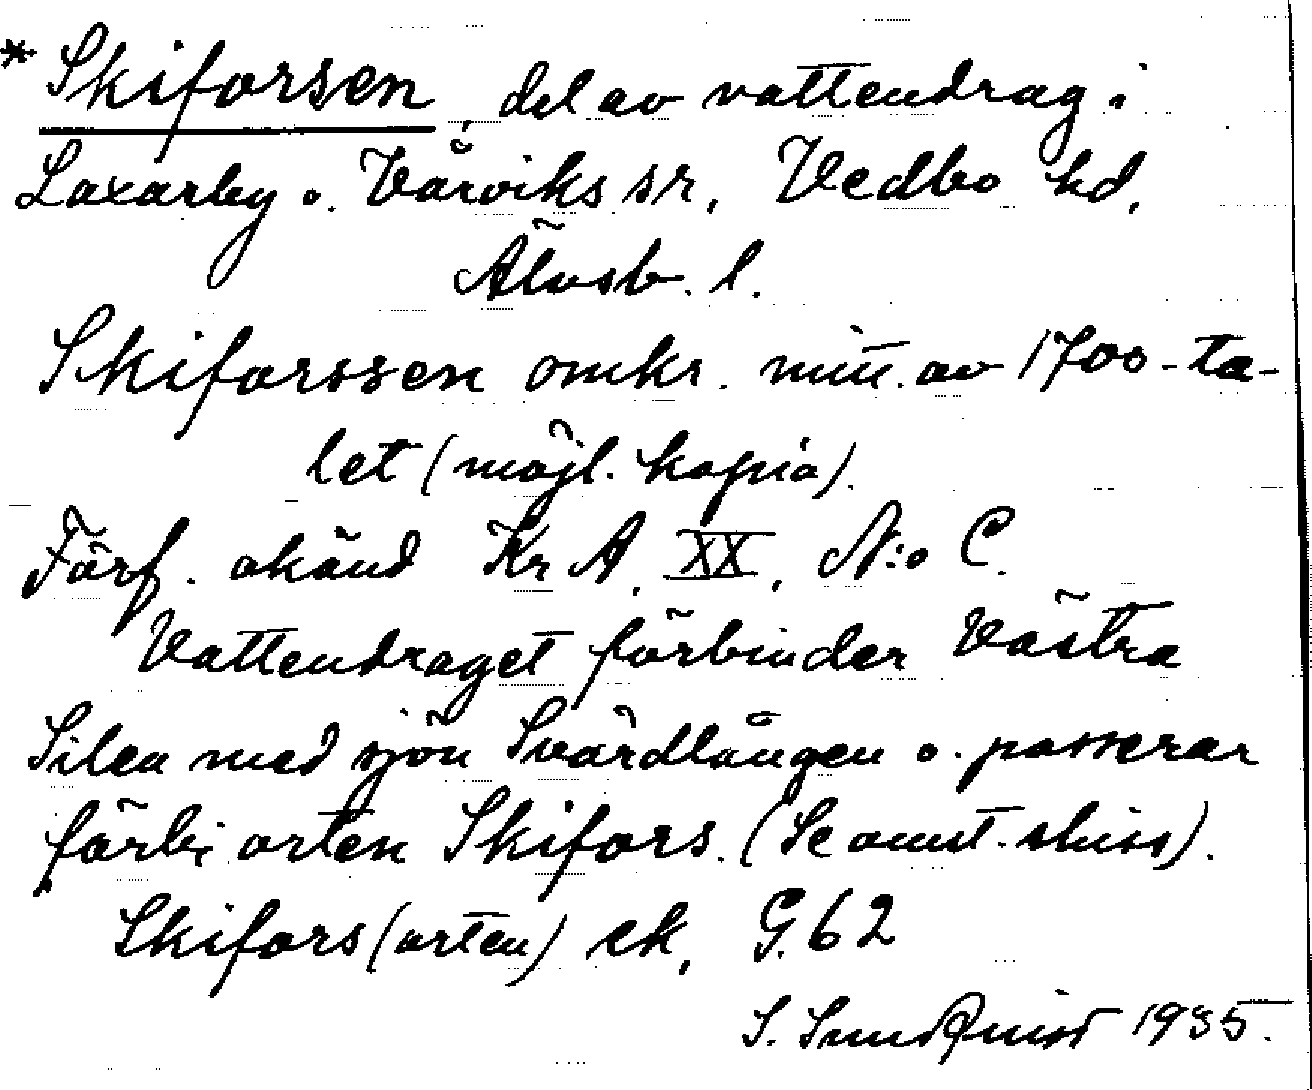 * Skiforsen, del av vattendrag i
Laxarby o. Vårviks sr, Vedbo hd,
Älvsb. l.
Skiforssen omkr. mitt. av 1700-ta-
let (möjl. kopia).
Förf. okänd Kr A, XX, N:o C.
Vattendraget förbinder Västra
Silen med sjön Svärdlången o. passerar
förbi orten Skifors. (Se omst. skiss).
Skifors (orten) ek, G. 62
S. Sundquist 1935.